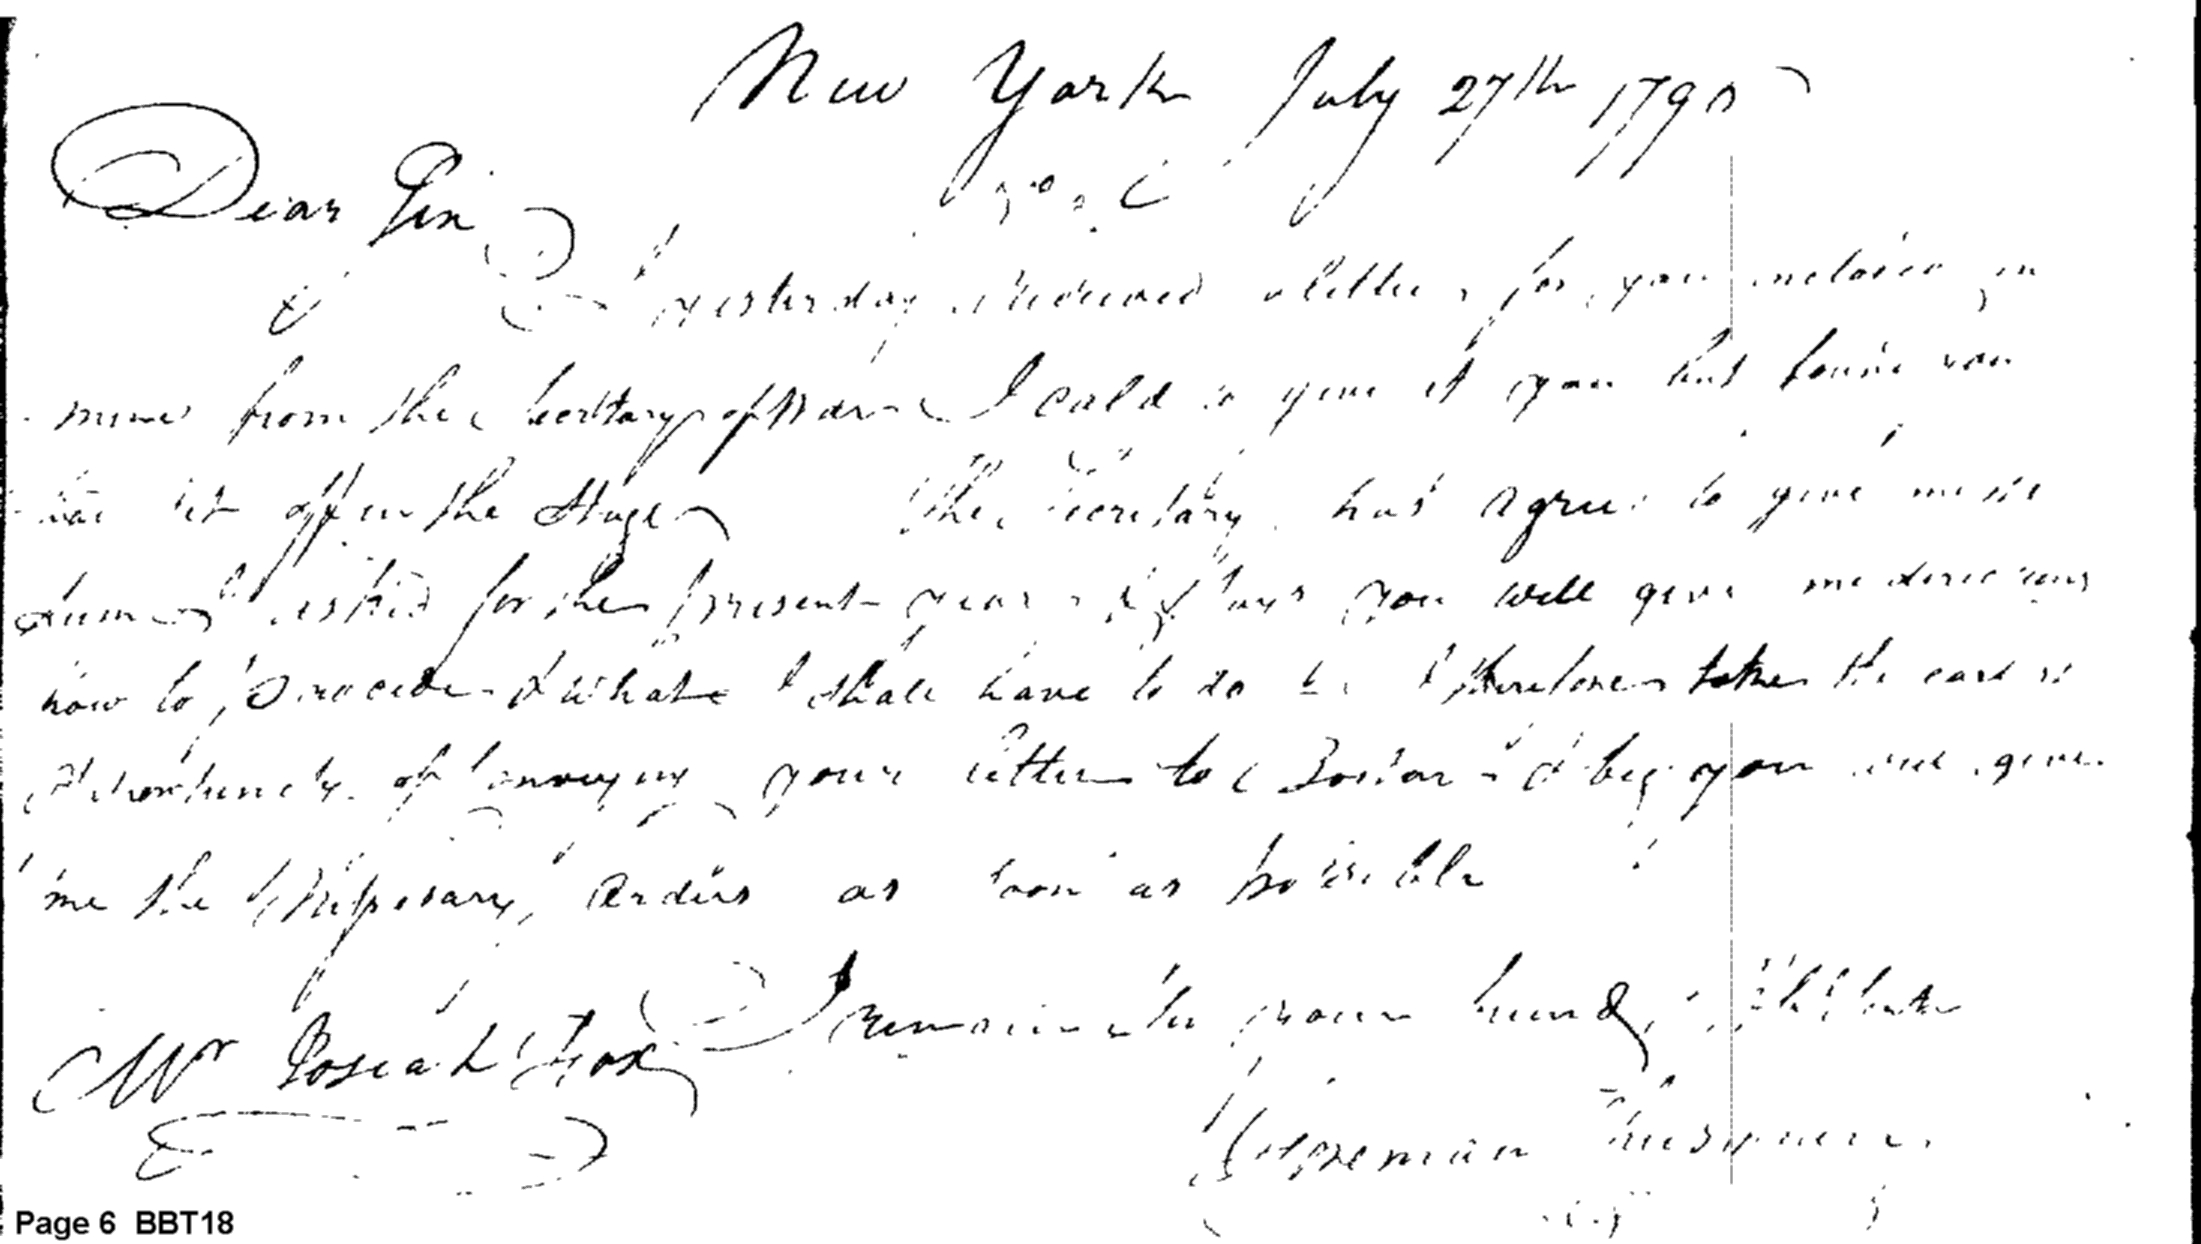 New York July 27th 1795
Dear Sir
I yesterday Received a letter for you inclosed in
mine from the Secretary of War I cald to give it you but found you
had set off in the Stage The Secretary has agreed to give me the
sum I asked for the present year & says you will give me directions
how to proceed & what I shall have to do I therefore take the
opertunety of conveying your letter to Boston & beg you will give
me the orders as soon as possible
I remain Sir your humb
Mr Josiah Fox
Page 6 BBT18